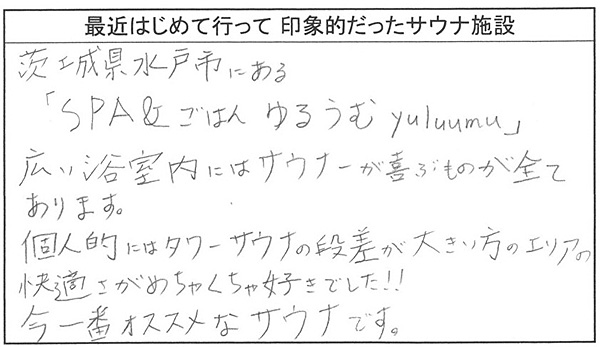 最近はじめて行って 印象的だったサウナ施設
茨城県水戸市にある
「SPA&ごはん ゆるうむ yuluumu」
広い浴室内にはサウナーが喜ぶものが全て
あります。
個人的にはタワーサウナの段差が大きい方のエリアの
快適さがめちゃくちゃ好きでした!!
今一番オススメなサウナです。